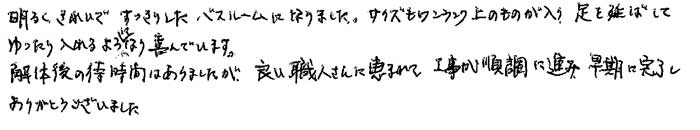 明るく、きれいで すっきりした バスルームになりました。サイズもワンランク上のものが入り 足を延ばして
ゆったり入れるようになり 喜んでいます。
解体後の待時間はありましたが、良い職人さんに恵まれて 工事が順調に進み 早期に完了し
ありがとうございました